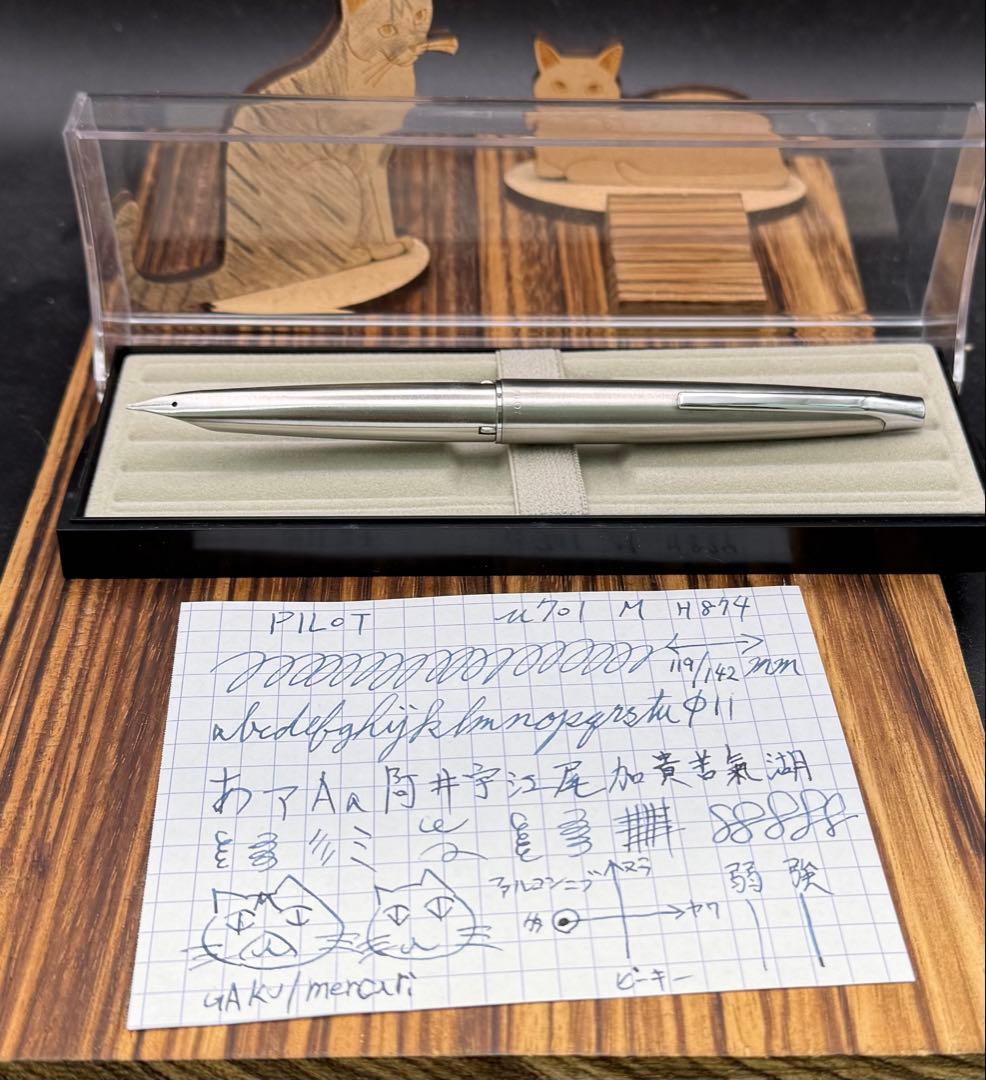 PILOT μ701 M H874
119/142 mm
abcdefghijklmnopqrstu
あアAa阿井宇江尾加貴苦氣湖
ファルコンニブ ヌラ 弱 強
カ ヤワ
ビーキー
GAKU/mercari